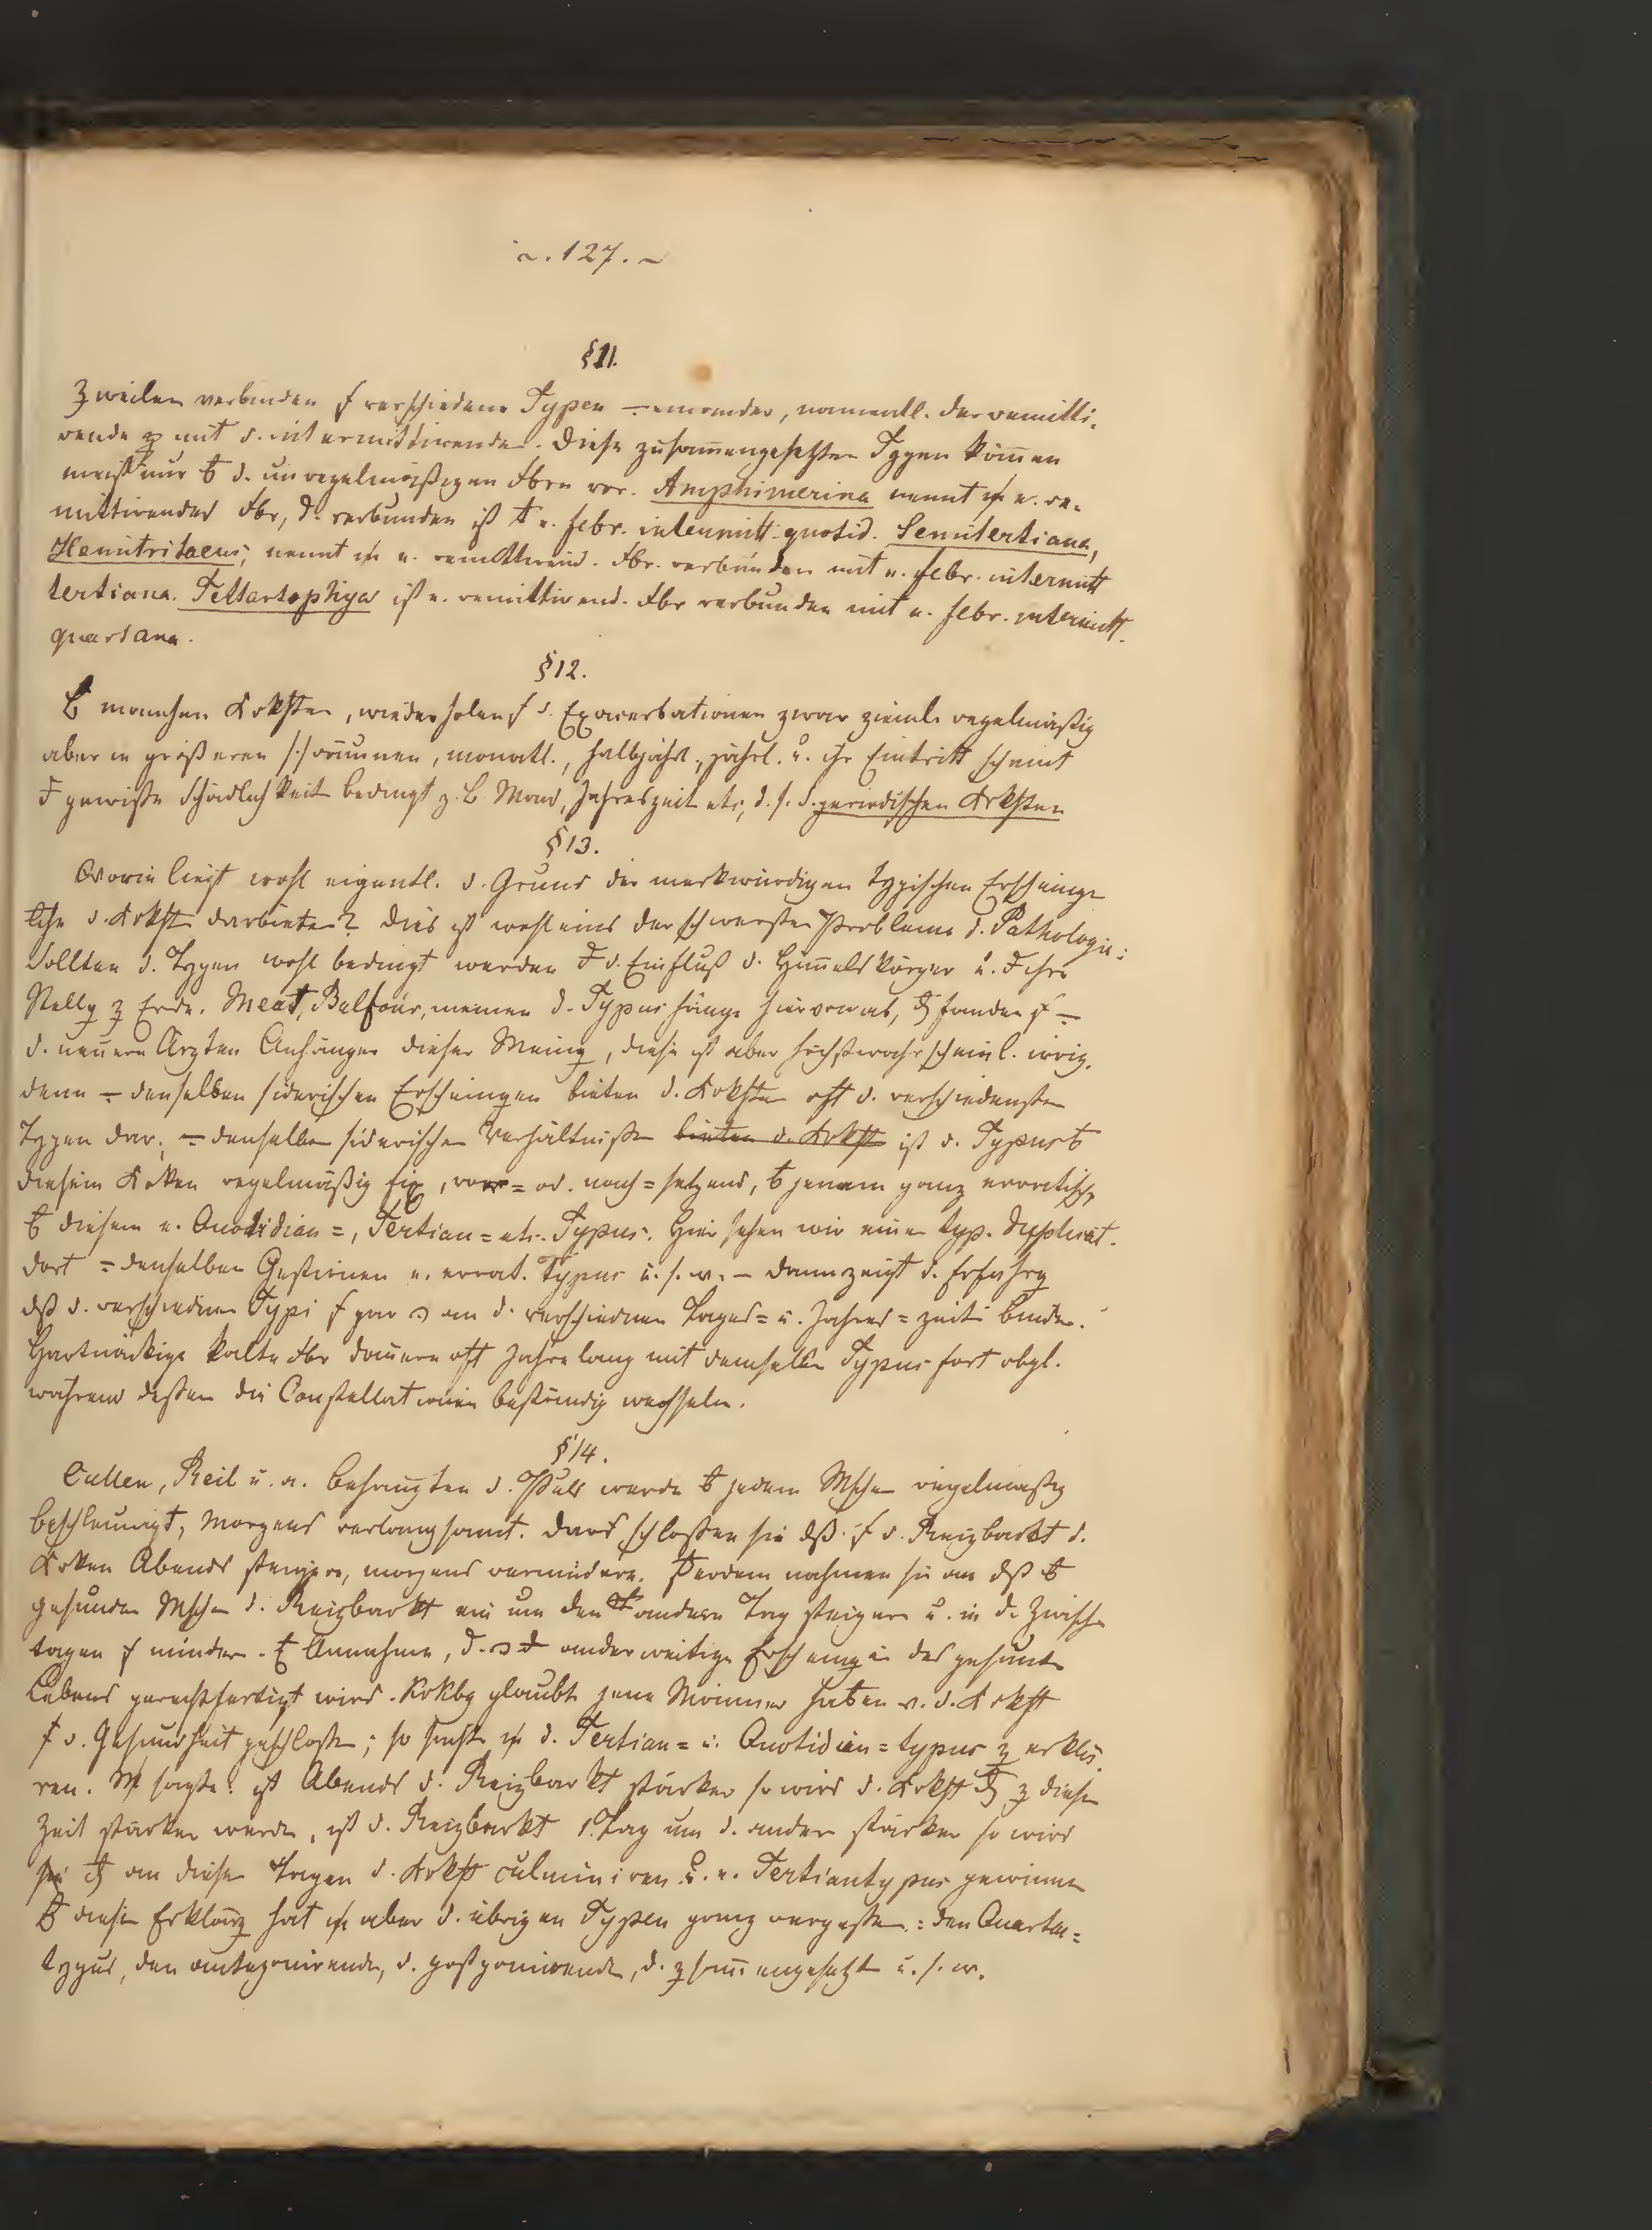 ~. 127. ~
§11.
Zuweilen verbinden s. verschiedene Typen ÷ einander, namentl. der remitti-
rende mit d. intermittirenden. Diese zusam̄engesetzten Typen kom̄en
meist nur d. unregelmäßigen Fbrn vor. Amphimerina nennt m. e. re-
mittirendes Fbr, d. verbunden ist e. febr. intermitt. quotid. Semitertiana,
Hemitritaeus, nennt m. e. remittirend. Fbr. verbunden mit e. febr. intermitt
tertiana. Tettartophya ist e. remittirend. Fbr verbunden mit e. febr. intermitt.
quartana.
§12.
manchen Krkhten, wiederholen s. d. Exacerbationen zwar zieml. regelmäßig
aber in größeren Zeiträumen, monatl., halbjährl., jährl. u. ihr Eintritt scheint
gewisse Schädlichkeit bedingt z. B. Mond, Jahreszeit etc, d. s. d. periodischen Krkhten
§13.
Worin liegt wohl eigentl. d. Grund der merkwürdigen typischen Erscheinungen
d. Krkht darbieten? Dies ist wohl eins der schwersten Probleme d. Pathologie:
Sollten d. Typen wohl bedingt werden d. Einfluß d. Him̄elskörper u. ihre
Stellg z Erde. Mead, Balfour, meinen d. Typus hänge hiervon ab, fanden s. ÷
d. neuern Ärzten Anhänger dieser Meing, diese ist aber höchstwahrscheinl. irrig.
denn ÷ denselben siderischen Erscheingen bieten d. Krkhten oft d. verschiedensten
Typen dar, ÷ denselben siderischen Verhältnissen bieten d. Krkht ist d. Typus
diesem Krken regelmäßig fix, vor= od. nach=setzend, jenem ganz erratisch,
diesem e. Quotidian=, Tertian= etc. Typus. Hier sehen wir einen typ. duplicat.
dort ÷ denselben Gestirnen e. errat. Typus u. s. w. – dann zeigt d. Erfahrg
dß d. verschiednen Typi s. gar an d. verschiednen Tages= u. Jahres=zeiten binden.
Hartnäckige kalte Fbr dauern oft Jahre lang mit demselben Typus fort obgl.
während dessen die Constellationen beständig wechseln.
§14.
Cullen, Reil u. a. behaupten d. Puls werde jedem Mschen regelmäßig
beschleunigt, Morgens verlangsamt. daraus schlossen sie dß s. d. Reizbarkt d.
Krken Abends steigere, morgens vermindere. Außerdem nahmen sie an dß
gesunden Mschen d. Reizbarkt ein um den andern Tag steigere u. in d. Zwischen
tagen s. mindere. Annahme, d. anderweitige Erscheingen des gesunden
Lebens gerechtfertigt wird. glaubt jene Männer haben v. d. Krkht
d. Gesundheit geschlossen; so suchte m. d. Tertian= u. Quotidian=typus z erklä-
ren. M. sagte: ist Abends d. Reizbarkt stärker so wird d. Krkht z dieser
Zeit stärker werden, ist d. Reizbarkt 1 Tag um d. andern stärker so wird
an diesen Tagen d. Krkht culminiren u. e. Tertiantypus gewinnen
dieser Erklärg hat m. aber d. übrigen Typen ganz vergessen: den Quartan=
typus, den anteponirenden, d. postponirenden, d. zusam̄engesetzten u. s. w.